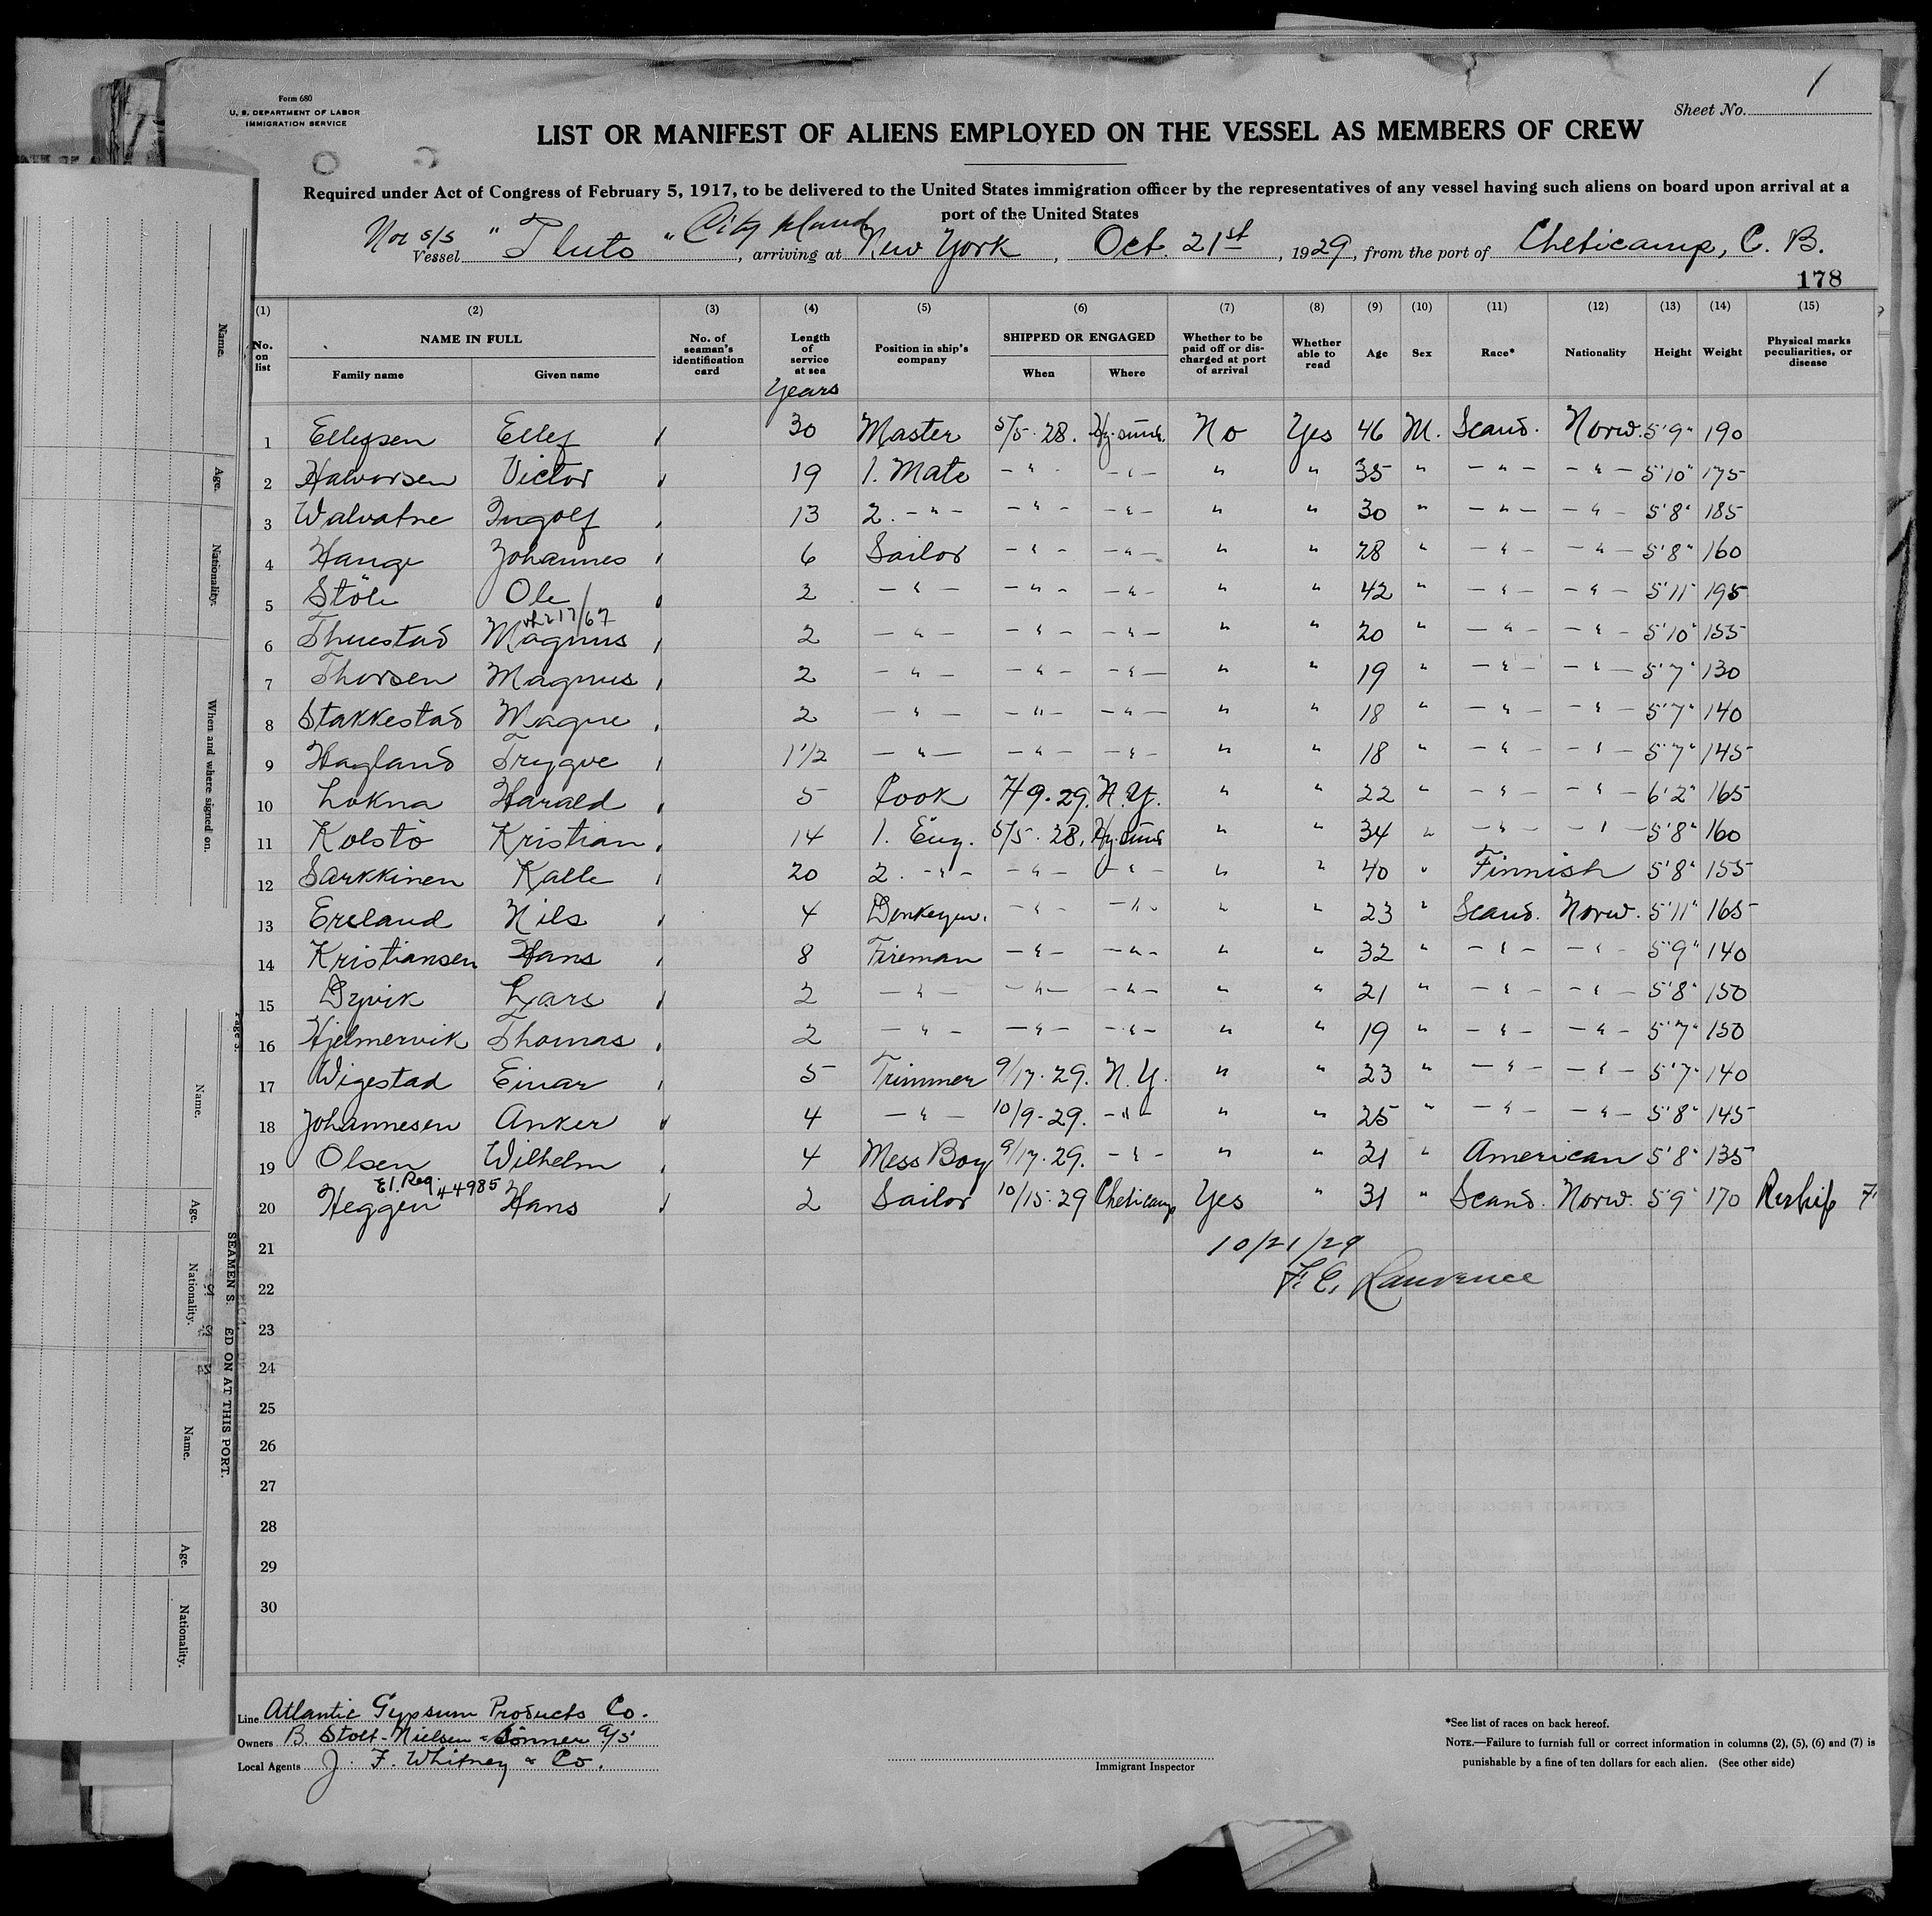 Form 680
U. S. DEPARTMENT OF LABOR
IMMIGRATION SERVICE
Sheet No. 1
LIST OR MANIFEST OF ALIENS EMPLOYED ON THE VESSEL AS MEMBERS OF CREW
Required under Act of Congress of February 5, 1917, to be delivered to the United States immigration officer by the representatives of any vessel having such aliens on board upon arrival at a
port of the United States
City Island
Nor s/s Vessel "Pluto", arriving at New York, Oct. 21st, 1929, from the port of Cheticamp, C. B.
178
(1) (2) (3) (4) (5) (6) (7) (8) (9) (10) (11) (12) (13) (14) (15)
No. on list NAME IN FULL Family name Given name No. of seaman's identification card Length of service at sea Years Position in ship's company SHIPPED OR ENGAGED When Where Whether to be paid off or discharged at port of arrival Whether able to read Age Sex Race* Nationality Height Weight Physical marks peculiarities, or disease
1 Ellefsen Ellef 30 Master 5/5-28. No Yes 46 M. Scand. Norw. 5'9" 190
2 Halvorsen Victor 19 1. Mate -"- -"- " " 35 " -"- -"- 5'10" 175
3 Walvatne Ingolf 13 2. -"- -"- -"- " " 30 " -"- -"- 5'8" 185
4 Hauge Johannes 6 Sailor -"- -"- " " 28 " -"- -"- 5'8" 160
5 Ole 2 -"- -"- -"- " " 42 " -"- -"- 5'11" 195
6 Thuestad Magnus 2 -"- -"- -"- " " 20 " -"- -"- 5'10" 155
7 Thorsen Magnus 2 -"- -"- -"- " " 19 " -"- -"- 5'7" 130
8 Stakkestad Magne 2 -"- -"- -"- " " 18 " -"- -"- 5'7" 140
9 Hagland Trygve 1 1/2 -"- -"- -"- " " 18 " -"- -"- 5'7" 145
10 Lokna Harald 5 Cook 9-29. N.Y. " " 22 " -"- -"- 6'2" 165
11 Kolstö Kristian 14 1. Eng. 5/5-28. " " 34 " -"- -"- 5'8" 160
12 Sarkkinen Kalle 20 2. -"- -"- -"- " " 40 " Finnish 5'8" 155
13 Ersland Nils 4 Donkeym. -"- -"- " " 23 " Scand. Norw. 5'11" 165
14 Kristiansen Hans 8 Fireman -"- -"- " " 32 " -"- -"- 5'9" 140
15 Lars 2 -"- -"- -"- " " 21 " -"- -"- 5'8" 150
16 Hjelmervik Thomas 2 -"- -"- -"- " " 19 " -"- -"- 5'7" 150
17 Wigestad Einar 5 Trimmer 9/17-29. N.Y. " " 23 " -"- -"- 5'7" 140
18 Johannesen Anker 4 -"- 10/9-29. -"- " " 25 " -"- -"- 5'8" 145
19 Olsen Wilhelm 4 Mess Boy 9/17-29. -"- " " 21 " American 5'8" 135
El. Reg. 44985
20 Heggen Hans 2 Sailor 10/15-29 Cheticamp Yes " 31 " Scand. Norw. 5'9" 170
21 10/21/29
22 F. C. Lawrence
23
24
25
26
27
28
29
30
Line Atlantic Gypsum Products Co.
Owners B. Stolt-Nielsen & Sönner a/s
Local Agents J. F. Whitney & Co.
Immigrant Inspector
*See list of races on back hereof.
NOTE.—Failure to furnish full or correct information in columns (2), (5), (6) and (7) is
punishable by a fine of ten dollars for each alien. (See other side)
Name.
Age.
Nationality.
When and where signed on.
Page 3.
Name.
Age.
Nationality.
Name.
Age.
Nationality.
SEAMEN S. ED ON AT THIS PORT.